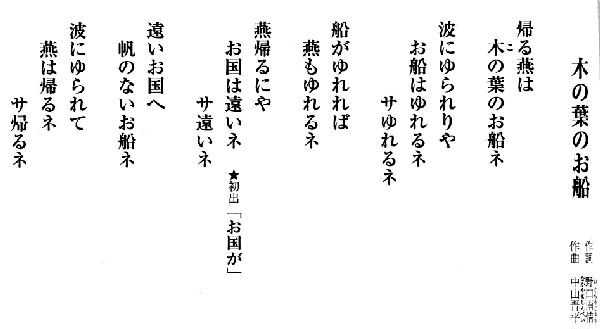 木の葉のお船
作詞 野口雨情
作曲 中山晋平
帰る燕は
木の葉のお船ネ
波にゆられりや
お船はゆれるネ
サゆれるネ
船がゆれれば
燕もゆれるネ
燕帰るにや
お国は遠いネ ★初出「お国が」
サ遠いネ
遠いお国へ
帆のないお船ネ
波にゆられて
燕は帰るネ
サ帰るネ